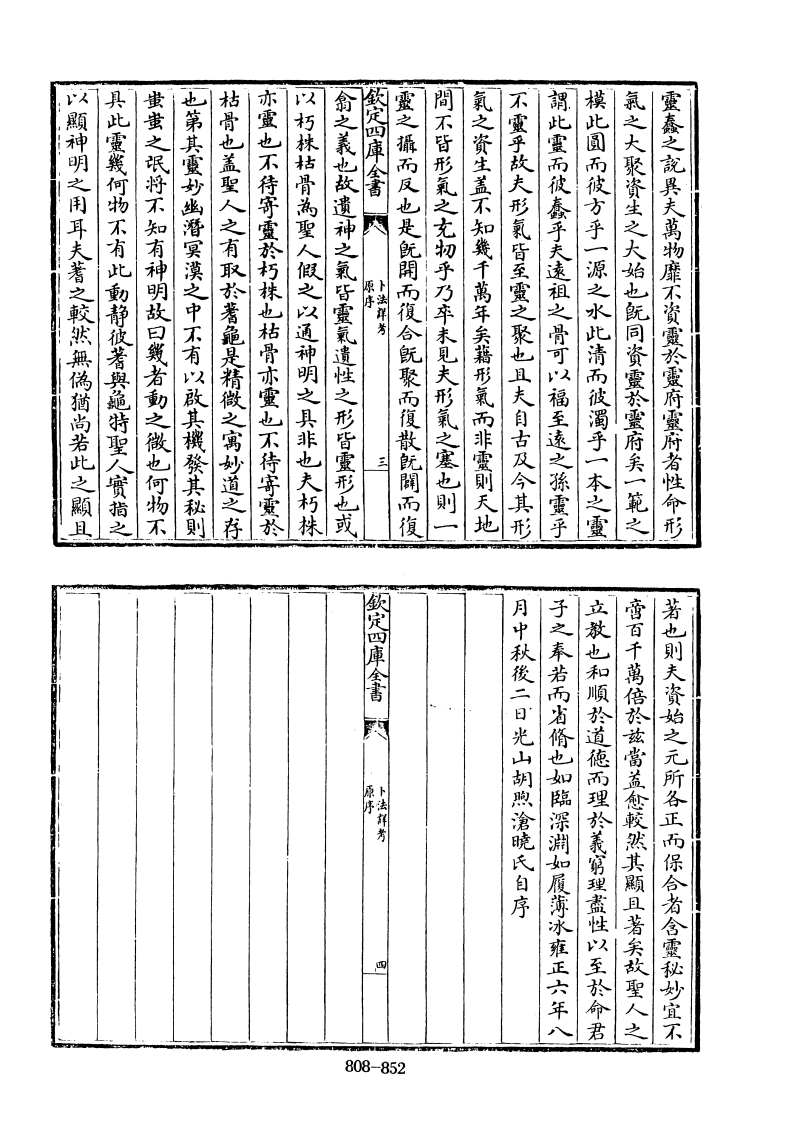 靈蠢之說異夫萬物靡不資靈於靈府靈府者性命形
氣之大聚資生之大始也既同資靈於靈府矣一範之
模此圓而彼方乎一源之水此清而彼濁乎一本之靈
謂此靈而彼蠢乎夫遠祖之骨可以福至遠之孫靈乎
不靈乎故夫形氣皆至靈之聚也且夫自古及今其形
氣之資生蓋不知幾千萬年矣藉形氣而非靈則天地
間不皆形氣之充牣乎乃卒未見夫形氣之塞也則一
靈之攝而反也是既開而復合既聚而復散既闢而復
欽定四庫全書
卜法詳考
原序
三
翕之義也故遺神之氣皆靈氣遺性之形皆靈形也或
以朽株枯骨為聖人假之以通神明之具非也夫朽株
亦靈也不待寄靈於朽株也枯骨亦靈也不待寄靈於
枯骨也蓋聖人之有取於蓍龜是精微之寓妙道之存
也第其靈妙幽潛冥漠之中不有以啟其機發其秘則
蚩蚩之氓將不知有神明故曰幾者動之微也何物不
具此靈幾何物不有此動靜彼蓍與龜特聖人實指之
以顯神明之用耳夫蓍之較然無偽猶尚若此之顯且
著也則夫資始之元所各正而保合者含靈秘妙宜不
啻百千萬倍於兹當益愈較然其顯且著矣故聖人之
立教也和順於道德而理於義窮理盡性以至於命君
子之奉若而省脩也如臨深淵如履薄冰雍正六年八
月中秋後二日光山胡煦滄曉氏自序
欽定四庫全書
卜法詳考
原序
四
808-852